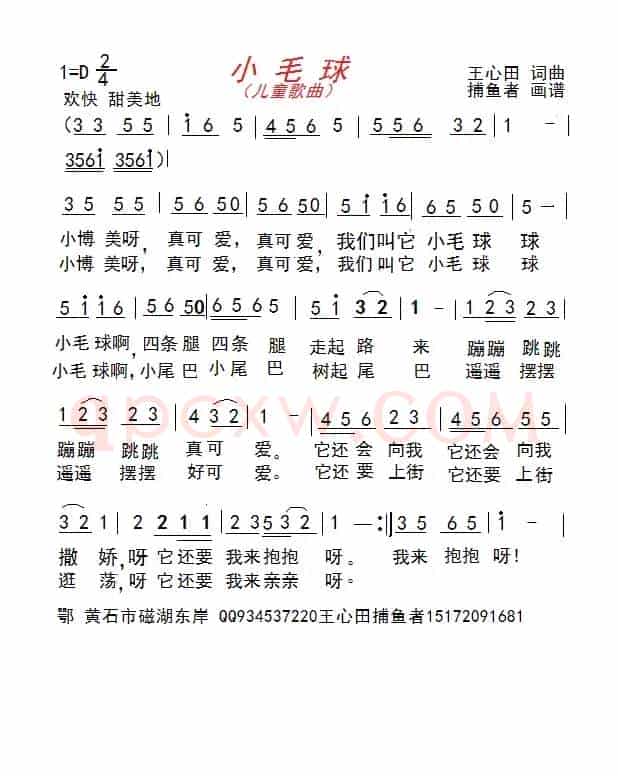 1=D 2/4 小毛球 王心田 词曲
欢快 甜美地 （儿童歌曲） 捕鱼者 画谱
(33 55 | i6 5 | 456 5 | 5 56 32 | 1 - |
356i 356i) |
35 55 | 56 50 | 56 50 | 5i i6 | 65 50 | 5 — |
小博 美呀, 真可 爱, 真可 爱, 我们叫它 小毛 球 球
小博 美呀, 真可 爱, 真可 爱, 我们叫它 小毛 球 球
5i i6 | 56 50 | 6565 | 5i 32 | 1 — | 123 23 |
小毛 球啊, 四条 腿 四条 腿 走起 路 来 蹦蹦 跳跳
小毛 球啊, 小尾 巴 小尾 巴 树起 尾 巴 遥遥 摆摆
123 23 | 432 | 1 - | 456 23 | 456 23 |
蹦蹦 跳跳 真可 爱。 它还会 向我 它还会 向我
遥遥 摆摆 好可 爱。 它还要 上街 它还要 上街
32 1 | 2 211 | 23532 | 1 - :|| 35 65 | 1 - |
撒 娇, 呀 它还要 我来抱抱 呀。 我来 抱抱 呀!
逛 荡, 呀 它还要 我来亲亲 呀。
鄂 黄石市磁湖东岸 QQ934537220王心田捕鱼者15172091681
qpcxw.COM